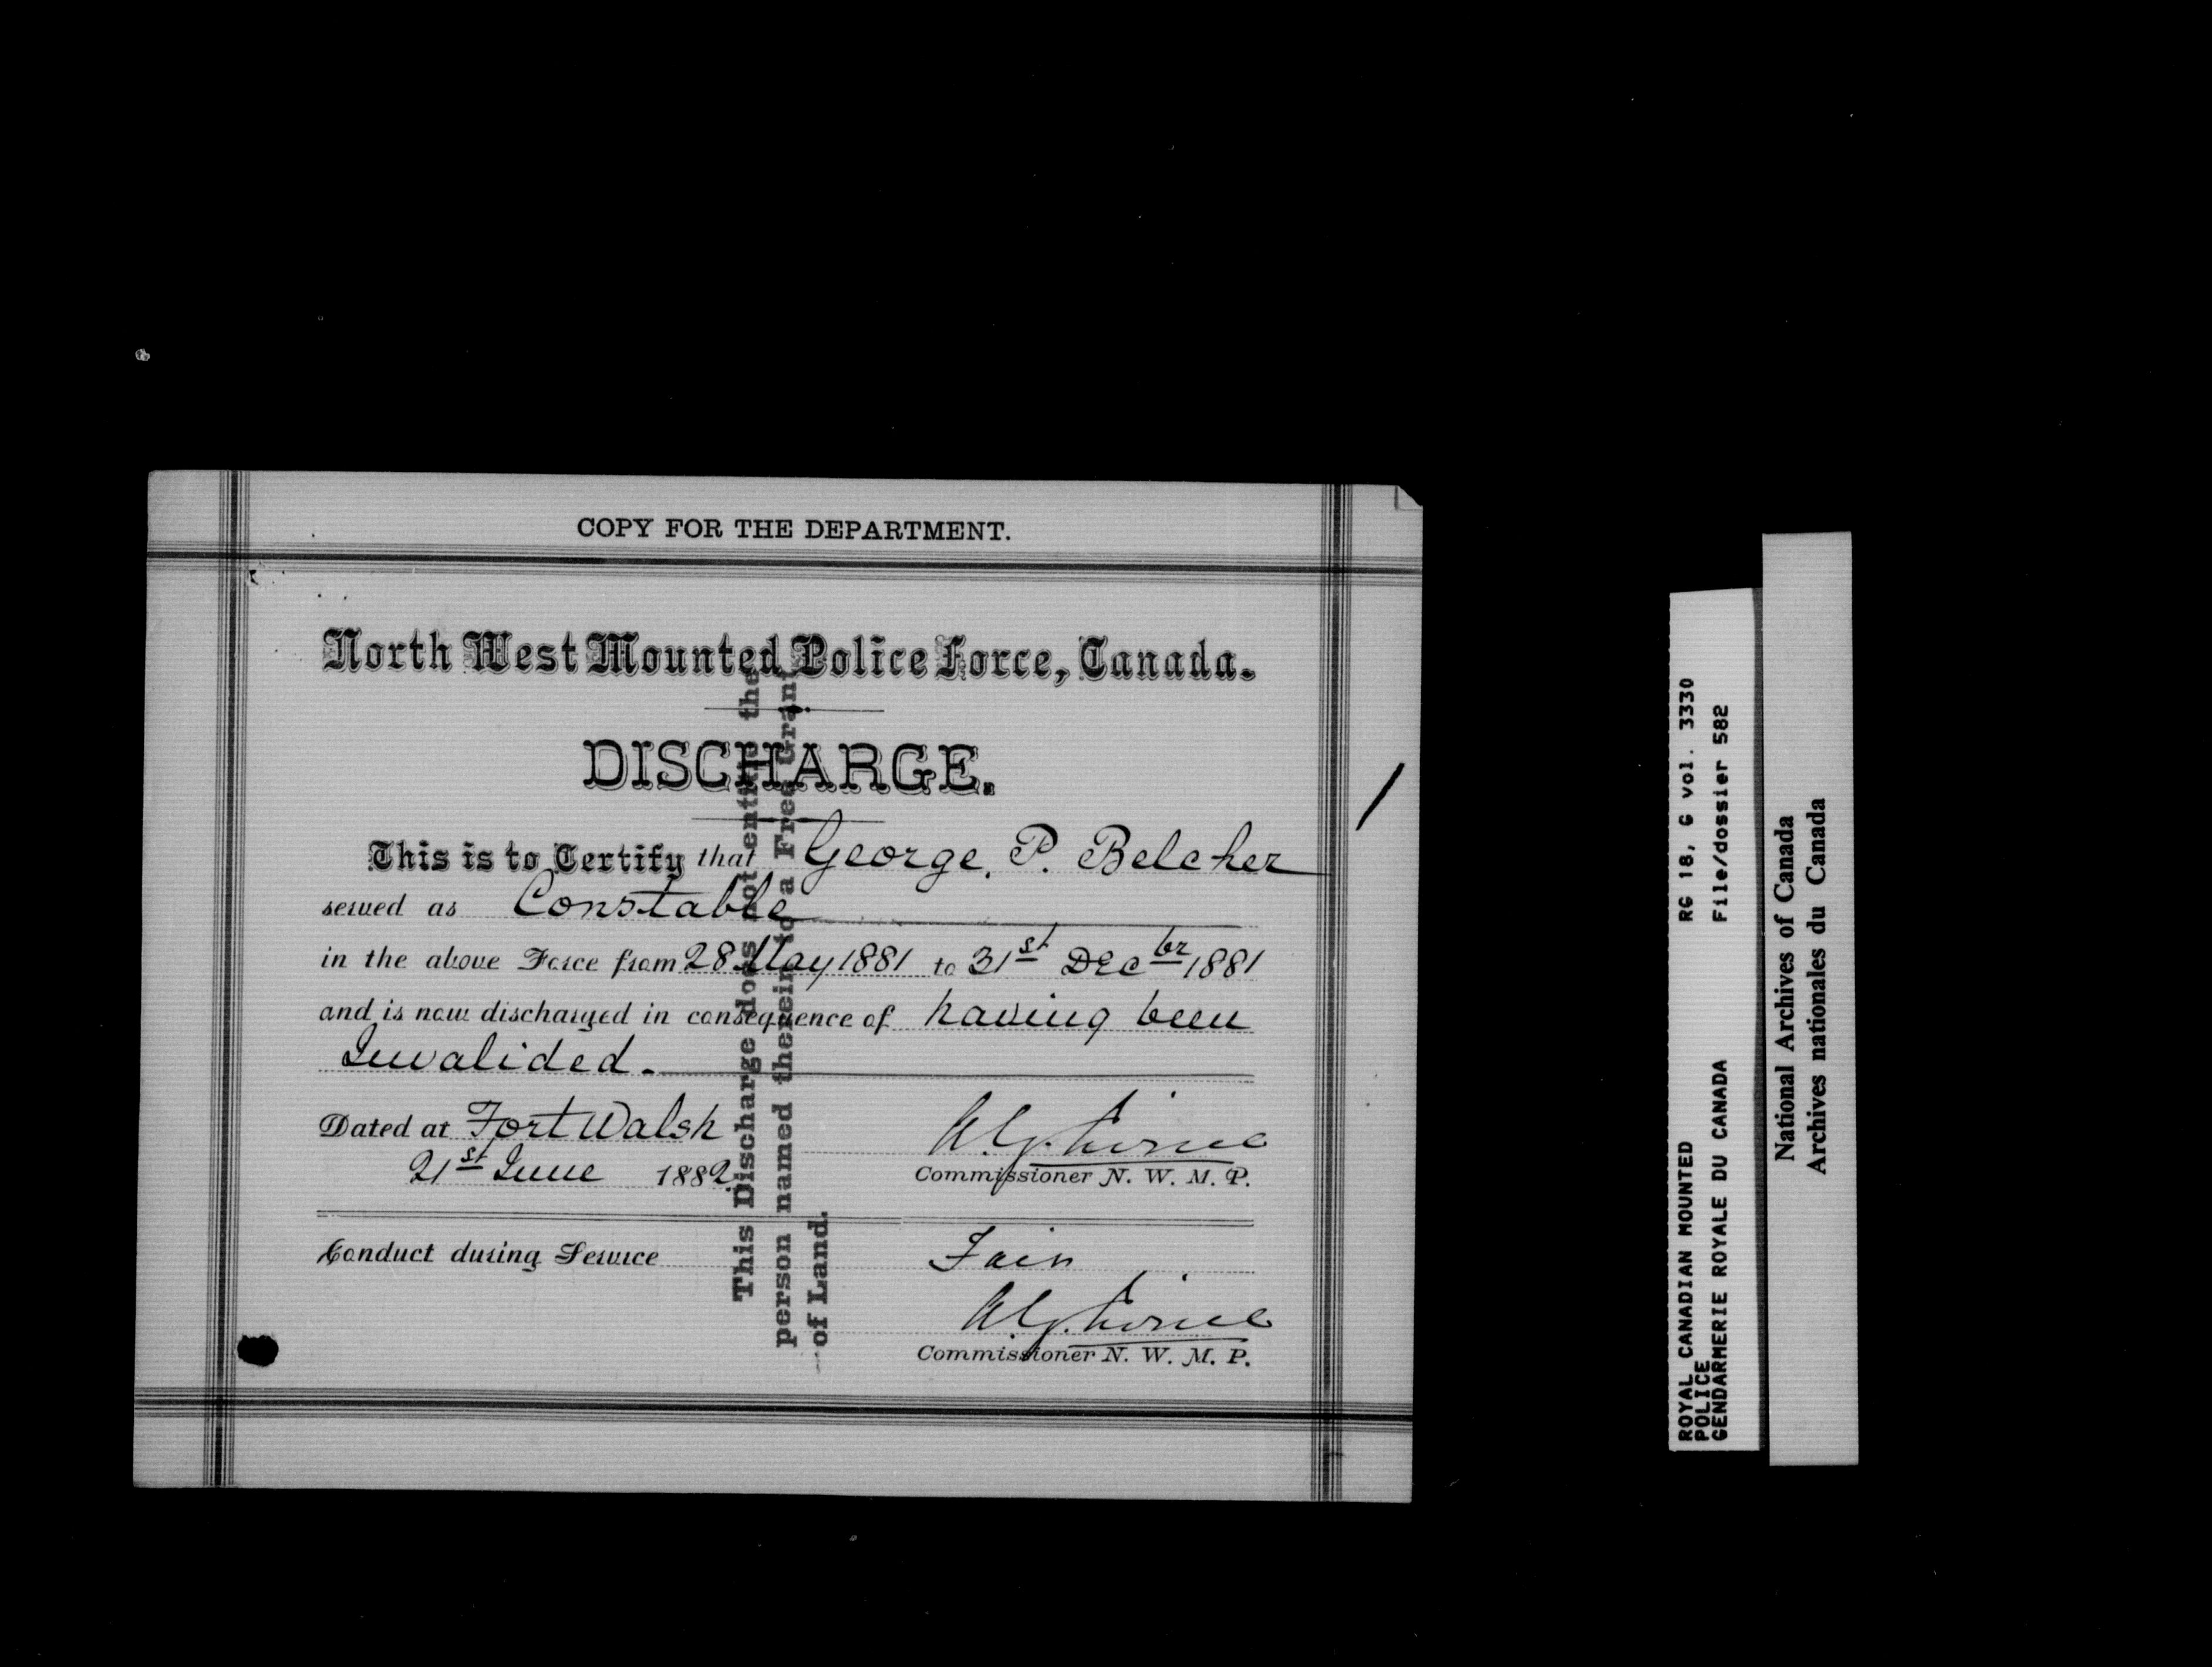 COPY FOR THE DEPARTMENT.
North West Mounted Police Force, Canada.
DISCHARGE.
This is to Certify that George. P. Belcher
served as Constable
in the above Force from 28 May 1881 to 31st Decbr 1881
and is now discharged in consequence of having been
Invalided.
Dated at Fort Walsh
21st June 1882
A.G. Irvine
Commissioner N. W. M. P.
Conduct during Service Fair
A.G. Irvine
Commissioner N. W. M. P.
This Discharge does not entitle the
person named therein to a Free Grant
of Land.
ROYAL CANADIAN MOUNTED RG 18, G vol. 3330
POLICE
GENDARMERIE ROYALE DU CANADA File/dossier 582
National Archives of Canada
Archives nationales du Canada